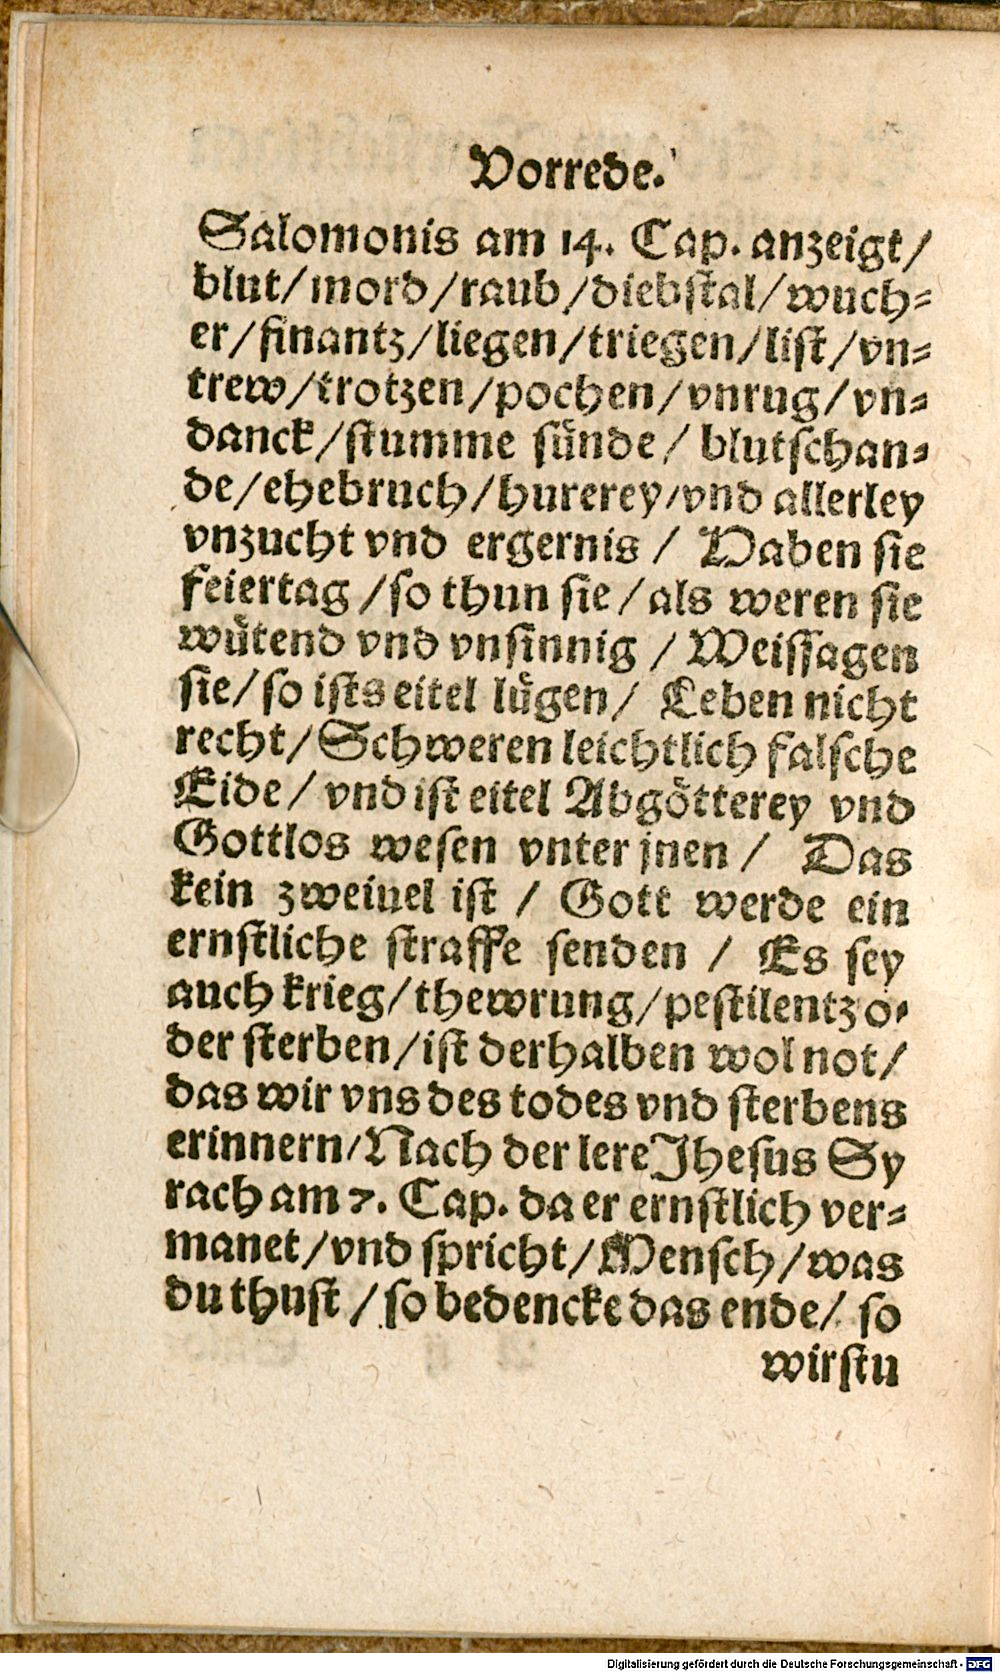 Vorrede.
Salomonis am 14. Cap. anzeigt/
blut/mord/raub/diebſtal/wuch⸗
er/finantz/liegen/triegen/liſt/vn⸗
trew/trotzen/pochen/vnrug/vn⸗
danck/ſtumme ſünde/ blutſchan⸗
de/ehebruch/hurerey/vnd allerley
vnzucht vnd ergernis / Haben ſie
feiertag /ſo thun ſie/als weren ſie
wütend vnd vnſinnig / Weiſſagen
ſie/ſo iſts eitel lügen/ Leben nicht
recht/Schweren leichtlich falſche
Eide/ vnd iſt eitel Abgötterey vnd
Gottlos weſen vnter jnen / Das
kein zweiuel iſt / Gott werde ein
ernſtliche ſtraffe ſenden / Es ſey
auch krieg/thewrung/peſtilentz o⸗
der ſterben/iſt derhalben wol not/
das wir vns des todes vnd ſterbens
erinnern/Nach der lere Jheſus Sy
rach am 7. Cap. da er ernſtlich ver⸗
manet/vnd ſpricht/Menſch/was
du thuſt /ſo bedencke das ende/ ſo
wirſtu
Digitalisierung gefördert durch die Deutsche Forschungsgemeinschaft - DFG